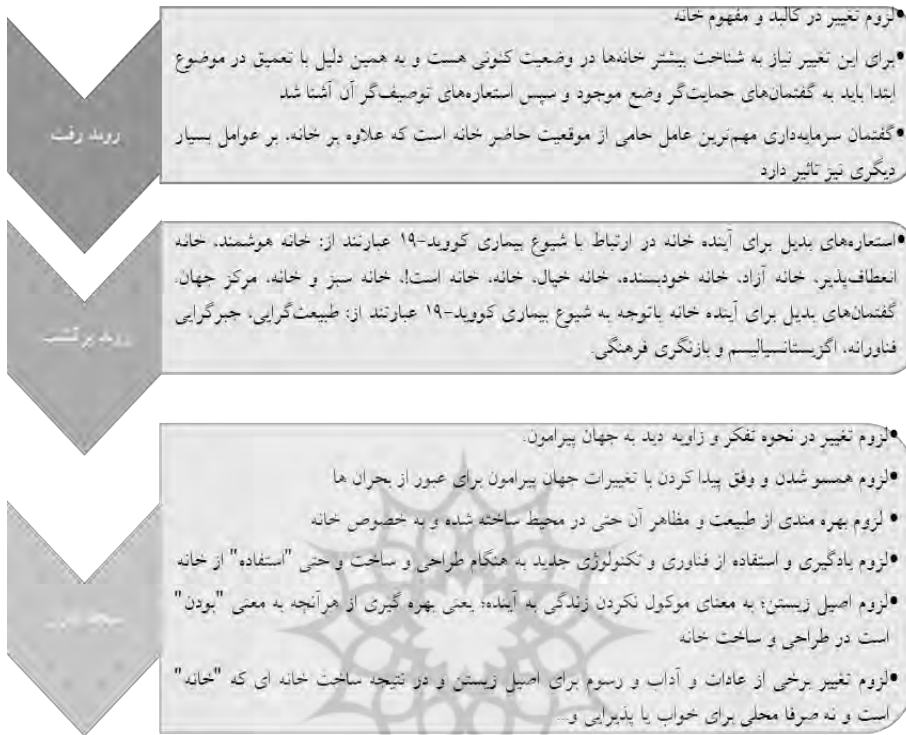 •لزوم تغییر در کالبد و مفهوم خانه
•برای این تغییر نیاز به شناخت بیشتر خانه‌ها در وضعیت کنونی هست و به همین دلیل با تعمیق در موضوع
ابتدا باید به گفتمان‌های حمایت‌گر وضع موجود و سپس استعاره‌های توصیف‌گر آن آشنا شد
•گفتمان سرمایه‌داری مهم‌ترین عامل حامی از موقعیت حاضر خانه است که علاوه بر خانه، بر عوامل بسیار
دیگری نیز تاثیر دارد
روند رفت
•استعاره‌های بدیل برای آینده خانه در ارتباط با شیوع بیماری کووید-۱۹ عبارتند از: خانه هوشمند، خانه
انعطاف‌پذیر، خانه آزاد، خانه خودبسنده، خانه خیال، خانه، خانه است!، خانه سبز و خانه، مرکز جهان.
گفتمان‌های بدیل برای آینده خانه باتوجه به شیوع بیماری کووید-۱۹ عبارتند از: طبیعت‌گرایی، جبرگرایی
فناورانه، اگزیستانسیالیسم و بازنگری فرهنگی.
روند برگشت
•لزوم تغییر در نحوه تفکر و زاویه دید به جهان پیرامون.
•لزوم همسو شدن و وفق پیدا کردن با تغییرات جهان پیرامون برای عبور از بحران ها
• لزوم بهره مندی از طبیعت و مظاهر آن حتی در محیط ساخته شده و به خصوص خانه
•لزوم یادگیری و استفاده از فناوری و تکنولوژی جدید به هنگام طراحی و ساخت و حتی "استفاده" از خانه
•لزوم اصیل زیستن؛ به معنای موکول نکردن زندگی به آینده؛ یعنی بهره گیری از هرآنچه به معنی "بودن"
است در طراحی و ساخت خانه
•لزوم تغییر برخی از عادات و آداب و رسوم برای اصیل زیستن و در نتیجه ساخت خانه ای که "خانه"
است و نه صرفا محلی برای خواب یا پذیرایی و...